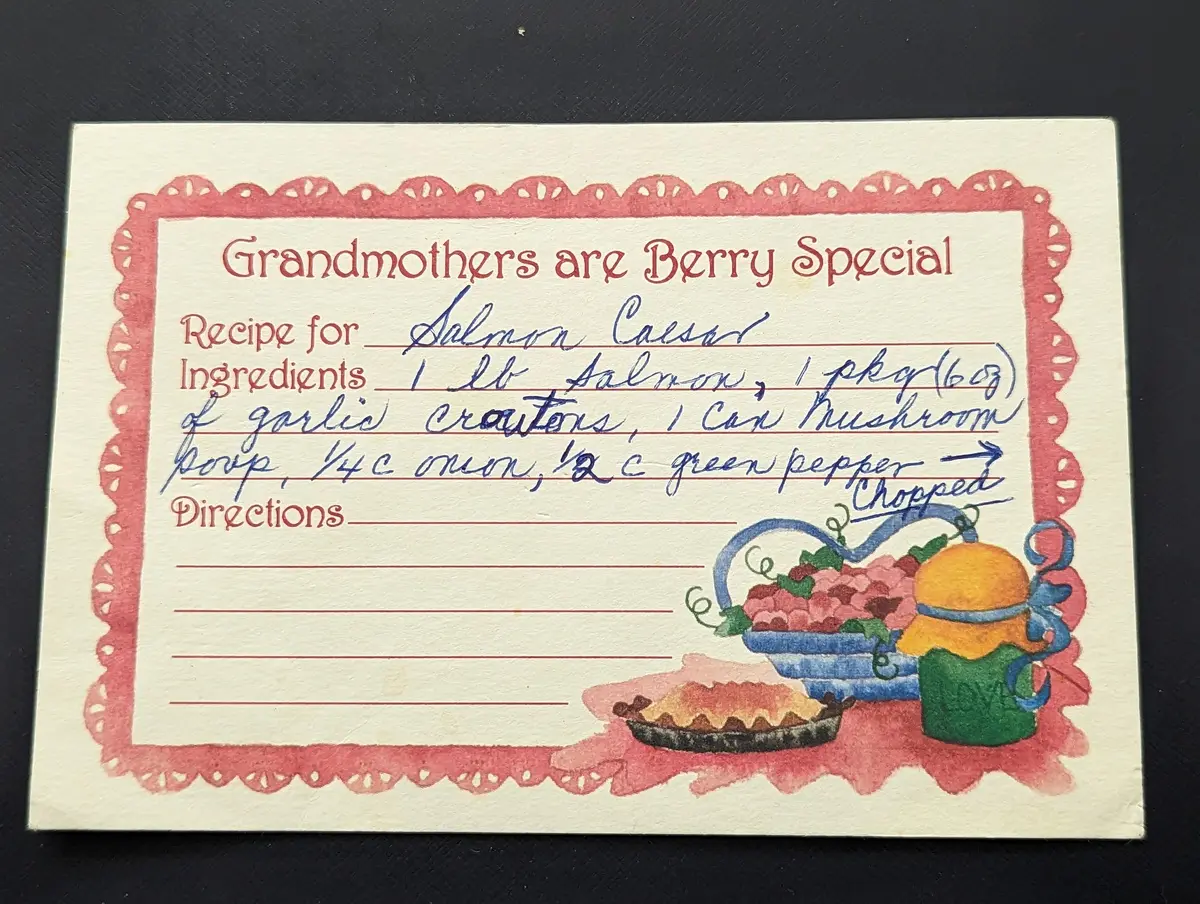 Grandmothers are Berry Special
Recipe for Salmon Caesar
Ingredients 1 lb Salmon, 1 pkg (6 oz)
of garlic croutons, 1 can Mushroom
soup, 1/4 c onion, 1/2 c green pepper →
Chopped
Directions
LOVE